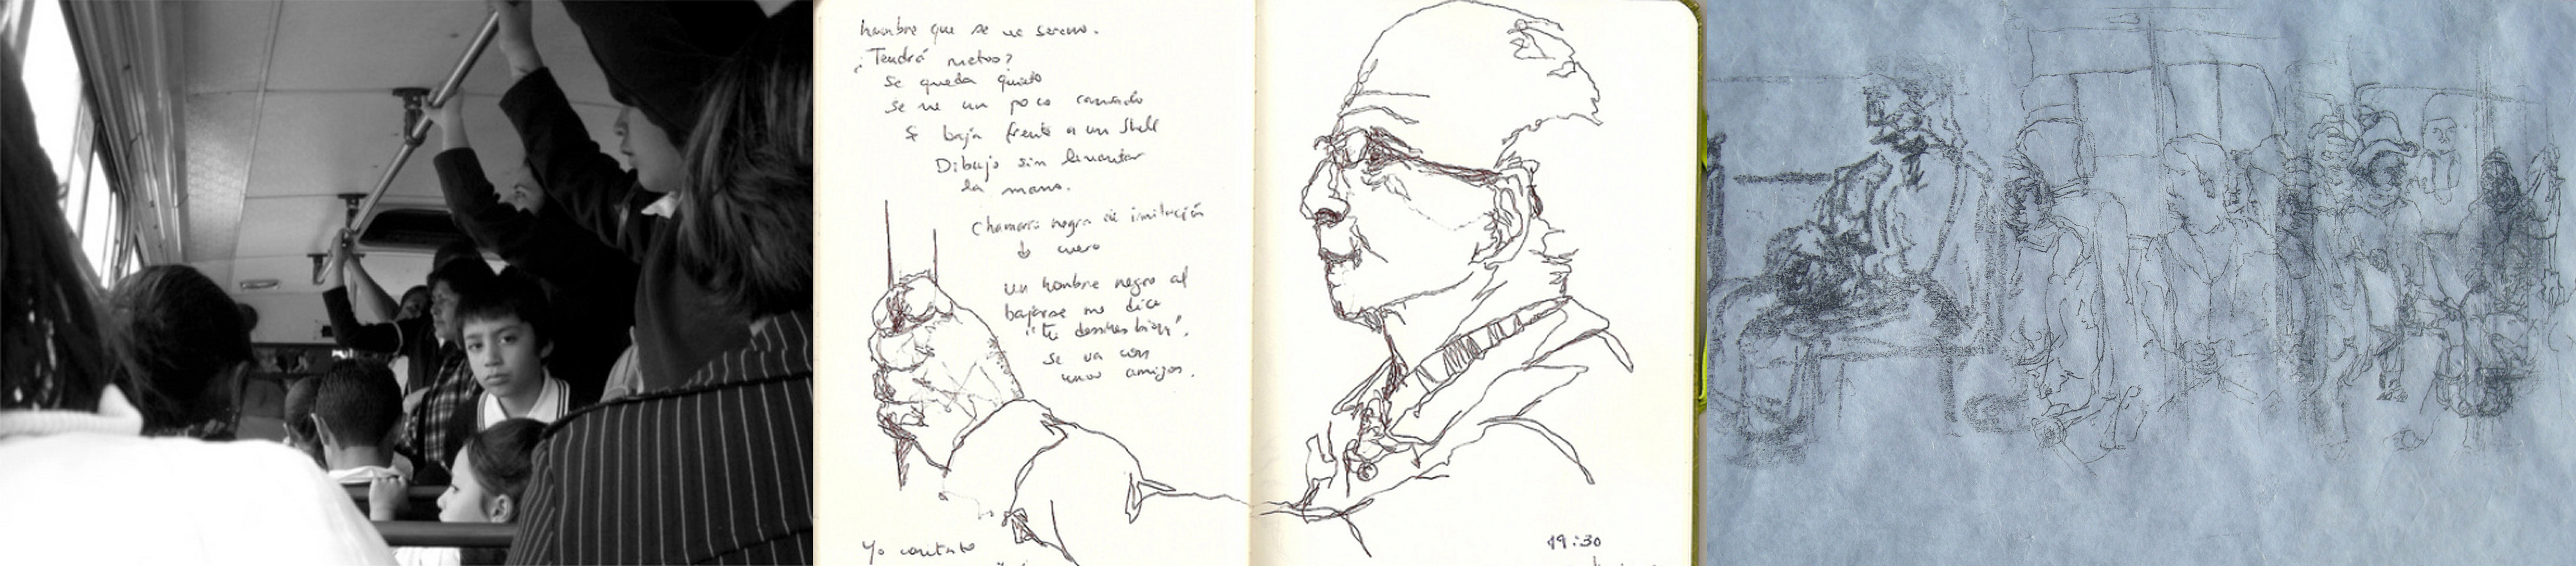 hombre que se ve sereno.
¿Tendrá nietos?
Se queda quieto
se ve un poco cansado
Se baja frente a un Shell
Dibujo sin levantar
la mano.
Chamarra negra de imitación
de cuero
un hombre negro al
bajarse me dice
"tú dessines bien".
se va con
unos amigos.
Yo contesto
19:30